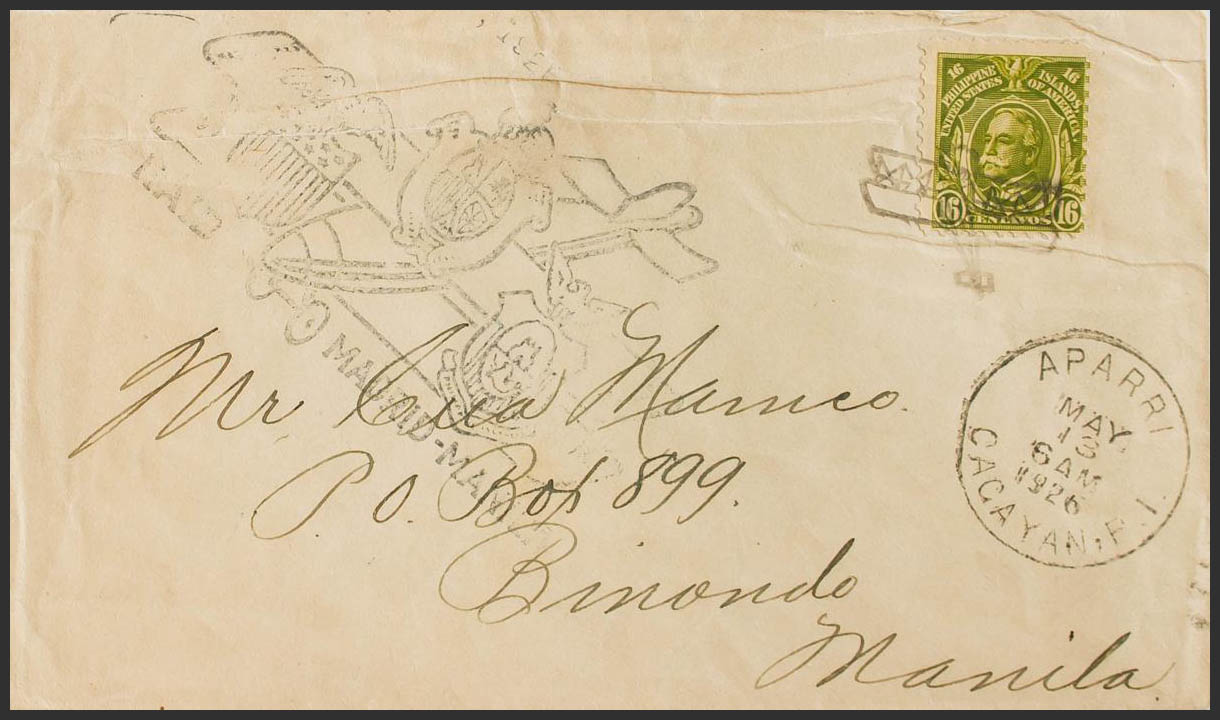 16 16
PHILIPPINE ISLANDS,
UNITED STATES OF AMERICA
16 CENTAVOS 16
RAID
MADRID-MANILA
APARRI
MAY
13
6AM
1926
CAGAYAN, P.I.
Mr
P.O. Box 899.
Binondo
Manila.